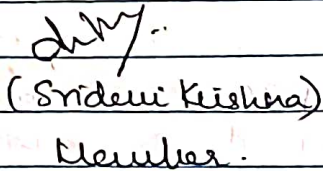 (Sridevi Krishna)
Member.